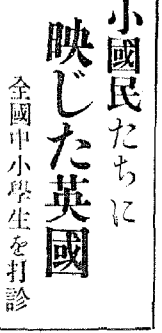 小國民たちに
映じた英國
全國中小學生を打診